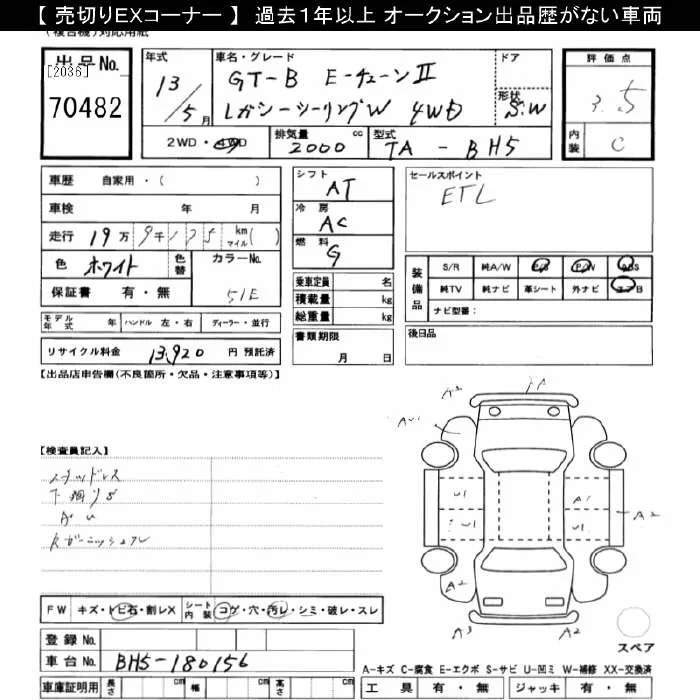 【 売切りEXコーナー 】 過去1年以上 オークション出品歴がない車両
(複合機)対応用紙
出品No.
[2036]
70482
年式
13/5月
車名・グレード
GT-B E-チューンII
レガシーツーリングW 4WD
ドア
形状
S.W
評価点
3.5
内装
C
2WD・4WD
排気量
2000 cc
型式
TA-BH5
車歴 自家用・( )
車検 年 月
走行 19万9千125 km マイル( )
色 ホワイト 色替
カラーNo.
51E
保証書 有・無
モデル年式 年 ハンドル 左・右 ディーラー・並行
リサイクル料金 13,920 円 預託済
シフト
AT
冷房
AC
燃料
G
乗車定員 名
積載量 kg
総重量 kg
書類期限
月 日
セールスポイント
ETC
装備品
S/R 純A/W P/S P/W ABS
純TV 純ナビ 革シート 外ナビ エアB
ナビ型番:
後日品
【出品店申告欄(不良箇所・欠品・注意事項等)】
【検査員記入】
スタッドレス
下廻りS
AU
Rガーニッシュワレ
A2
1A
AU1
U1
A1
U1
U1
A2
A2
A3
A2
スペア
FW キズ・トビ石・割レX
シート内装 コゲ・穴・汚レ・シミ・破レ・スレ
登録No.
車台No. BH5-180156
車庫証明用 長さ cm 幅 cm 高さ cm
A-キズ C-腐食 E-エクボ S-サビ U-凹ミ W-補修 XX-交換済
工具 有・無 ジャッキ 有・無